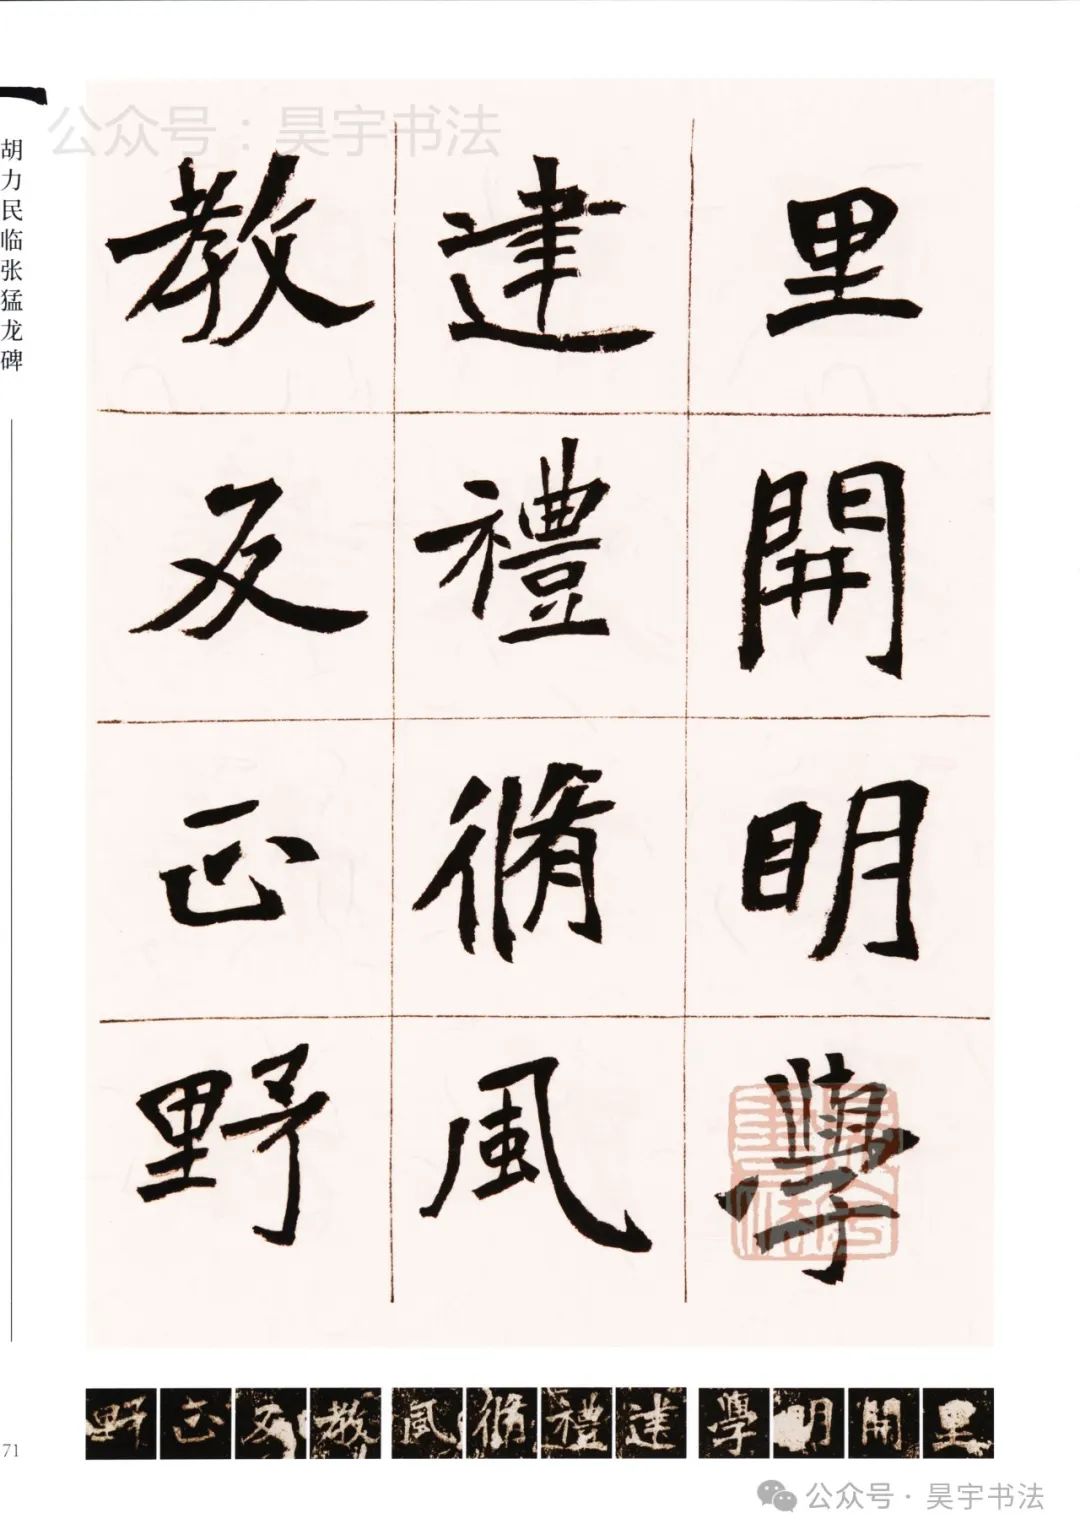 公众号：昊宇书法
胡力民临张猛龙碑
里開明學
建禮脩風
教反正野
野正反教風脩禮建學明開里
71
公众号·昊宇书法